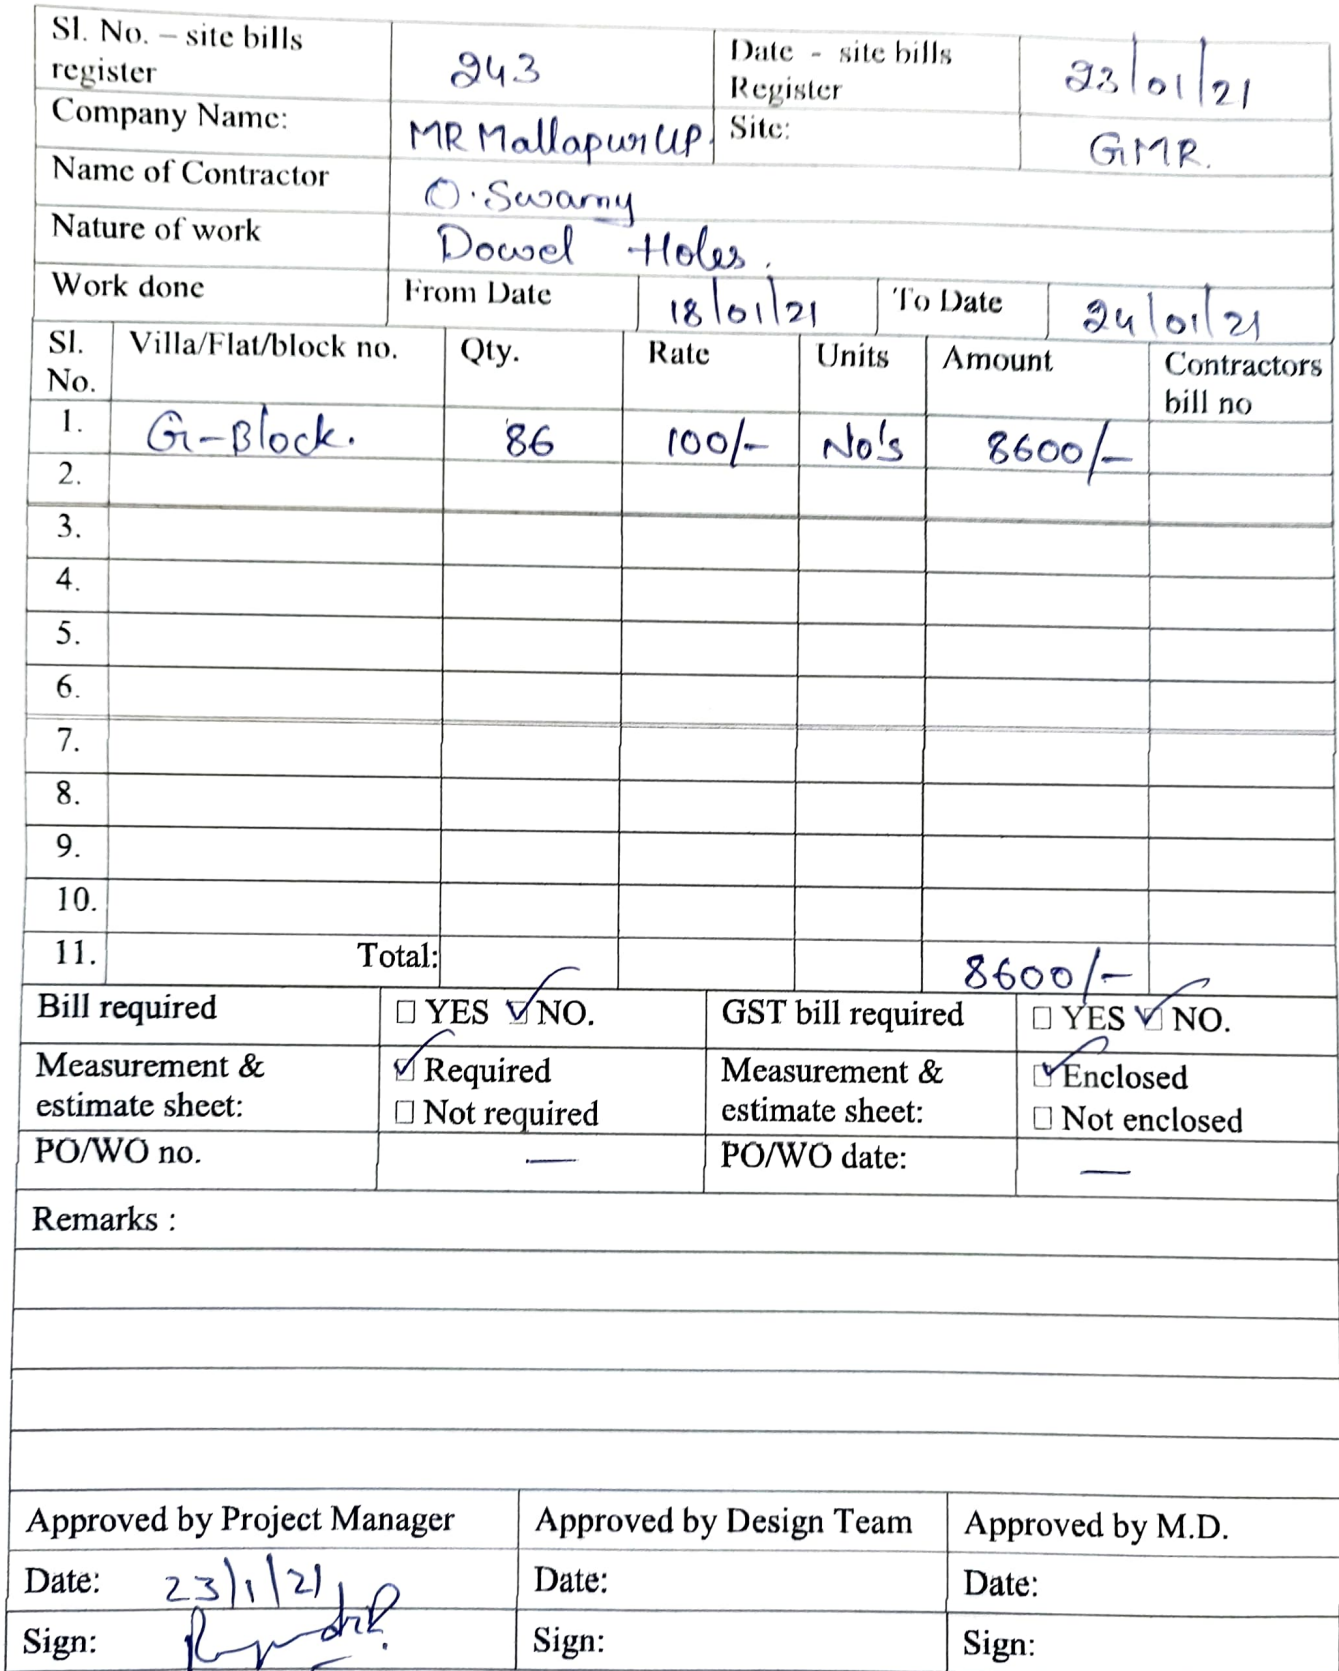 Sl. No. – site bills register 243 Date - site bills Register 23/01/21
Company Name: MR Mallapur UP. Site: GMR.
Name of Contractor O. Swamy
Nature of work Dowel Holes.
Work done From Date 18/01/21 To Date 24/01/21
Sl. No. Villa/Flat/block no. Qty. Rate Units Amount Contractors bill no
1. G-Block. 86 100/- No's 8600/-
2.
3.
4.
5.
6.
7.
8.
9.
10.
11. Total: 8600/-
Bill required ☐ YES ☑ NO. GST bill required ☐ YES ☑ NO.
Measurement & estimate sheet: ☑ Required ☐ Not required Measurement & estimate sheet: ☑ Enclosed ☐ Not enclosed
PO/WO no. — PO/WO date: —
Remarks :
Approved by Project Manager Approved by Design Team Approved by M.D.
Date: 23/1/21 Date: Date:
Sign: Sign: Sign: